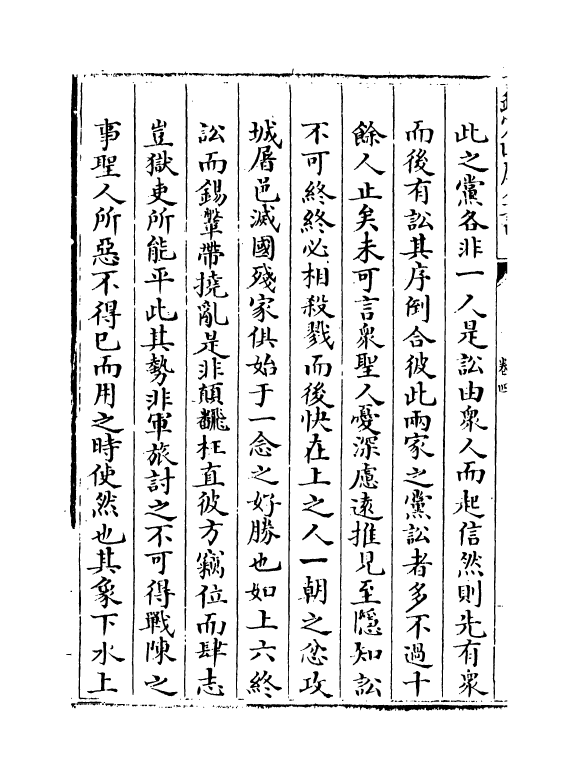 此之黨各非一人是訟由衆人而起信然則先有衆
而後有訟其序倒合彼此兩家之黨訟者多不過十
餘人止矣未可言衆聖人憂深慮遠推見至隱知訟
不可終終必相殺戮而後快在上之人一朝之忿攻
城屠邑滅國殘家俱始于一念之好勝也如上六終
訟而錫鞶帶撓亂是非顛飜枉直彼方竊位而肆志
豈獄吏所能平此其勢非軍旅討之不可得戰陳之
事聖人所惡不得巳而用之時使然也其象下水上
卷四